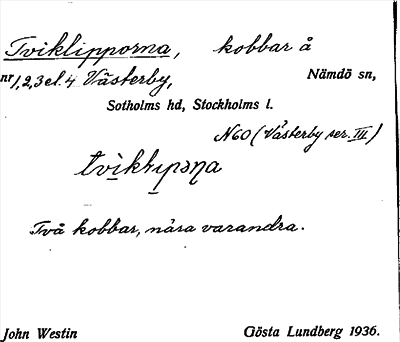 Tviklipporna, kobbar å
nr 1,2,3 el. 4 Västerby, Nämdö sn,
Sotholms hd, Stockholms l.
N60 (Västerby ser. III)
Två kobbar, nära varandra.
John Westin Gösta Lundberg 1936.